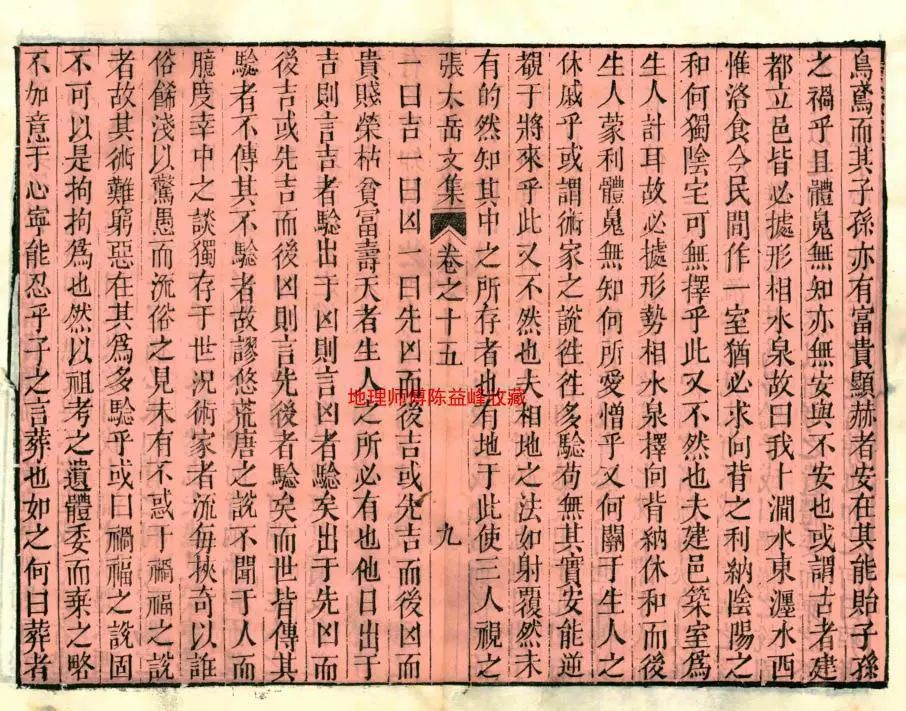 烏鳶而其子孫亦有富貴顯赫者安在其能貽子孫
之禍乎且體鬼無知亦無安與不安也或謂古者建
都立邑皆必據形相水泉故曰我卜澗水東瀍水西
惟洛食今民間作一室猶必求向背之利納陰陽之
和何獨陰宅可無擇乎此又不然也夫建邑築室爲
生人計耳故必據形勢相水泉擇向背納休和而後
生人蒙利體鬼無知何所愛憎乎又何關于生人之
休戚乎或謂術家之說徃徃多驗苟無其實安能逆
覩于將來乎此又不然也夫相地之法如射覆然未
有的然知其中之所存者也今有地于此使三人視之
張太岳文集 卷之十五 九
一曰吉一曰凶一曰先凶而後吉或先吉而後凶而
貴賤榮枯貧富壽夭者生人之所必有也他日出于
吉則言吉者驗出于凶則言凶者驗矣出于先凶而
後吉或先吉而後凶則言先後者驗矣而世皆傳其
驗者不傳其不驗者故謬悠荒唐之說不聞于人而
臆度幸中之談獨存于世況術家者流每挾奇以誑
俗餙淺以驚愚而流俗之見未有不惑于禍福之說
者故其術難窮惡在其爲多驗乎或曰禍福之說固
不可以是拘拘爲也然以祖考之遺體委而棄之略
不如意于心寧能忍乎子之言葬也如之何曰葬者
地理师傅陈益峰收藏